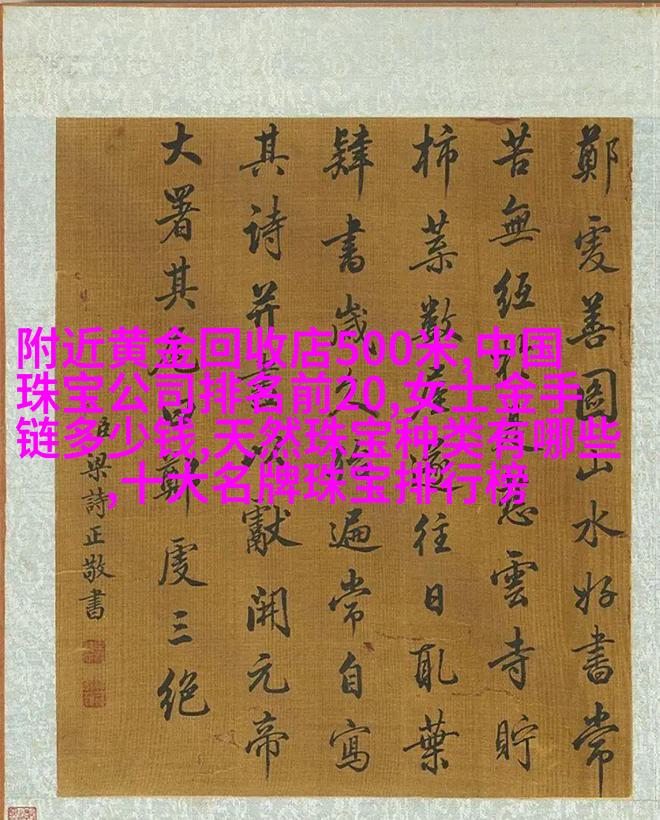 附近黄金回收店500米,中国
珠宝公司排名前20,女士金手
链多少钱,天然珠宝种类有哪些
,十大名牌珠宝排行榜
鄭虔善圖山水好書常
苦無紙慈雲寺貯
柿葉數屋遂往日取葉
肄書歲久殆遍常自寫
其詩并畫以獻開元帝
大署其尾曰鄭虔三絕
臣梁詩正敬書